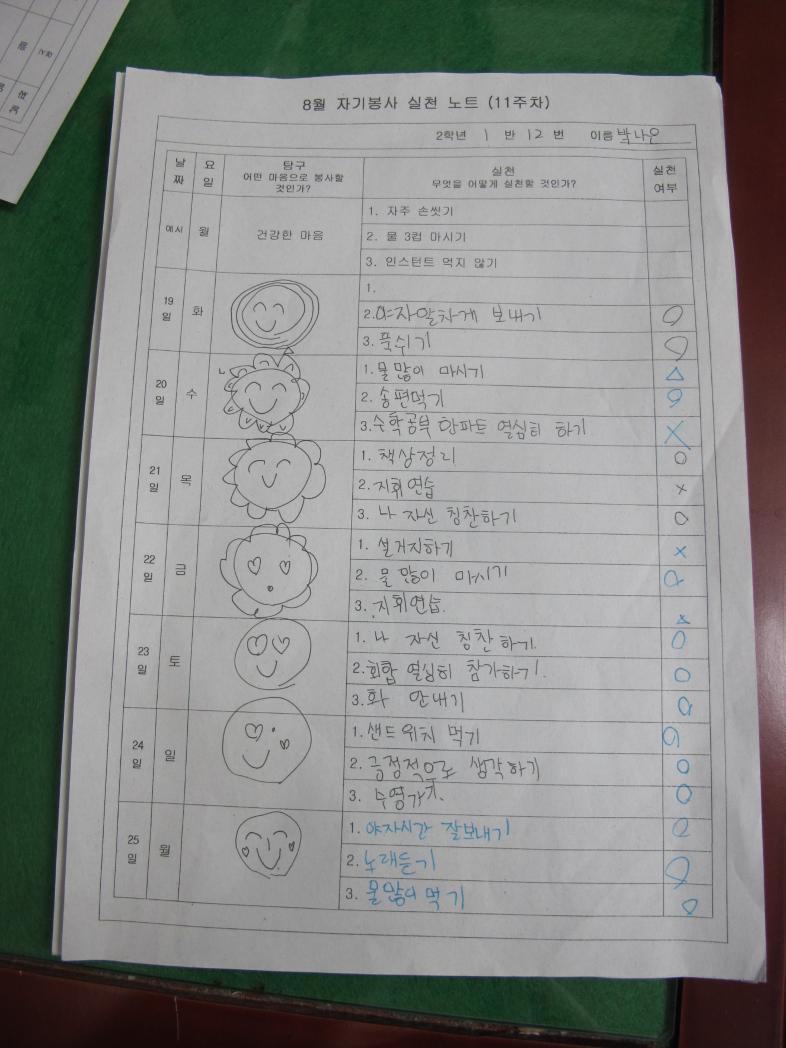 8월 자기봉사 실천 노트 (11주차)
2학년 1 반 12 번 이름 박나은
날짜 요일 탐구 실천 실천
어떤 마음으로 봉사할 것인가? 무엇을 어떻게 실천할 것인가? 여부
예시 월 건강한 마음
1. 자주 손씻기
2. 물 3컵 마시기
3. 인스턴트 먹지 않기
19일 화
1.
2. 야자알차게 보내기 O
3. 푹쉬기 O
20일 수
1. 물 많이 마시기 △
2. 송편먹기 O
3. 수학공부 한파트 열심히 하기 X
21일 목
1. 책상정리 O
2. 지휘연습 x
3. 나 자신 칭찬하기 O
22일 금
1. 설거지하기 x
2. 물 많이 마시기 O
3. 지휘연습. x
23일 토
1. 나 자신 칭찬하기. O
2. 회합 열심히 참가하기. O
3. 화 안내기 O
24일 일
1. 샌드위치 먹기 O
2. 긍정적으로 생각하기 O
3. 수영가기. O
25일 월
1. 야자시간 잘보내기 O
2. 노래듣기 O
3. 물많이먹기 O